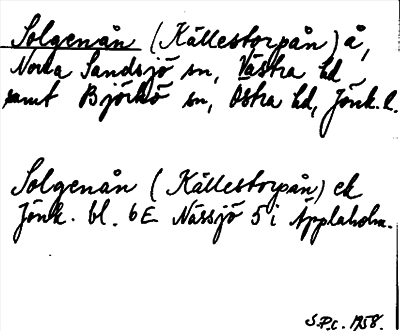 Solgenån (Källestorpån) å,
Norra Sandsjö sn, Västra hd
samt Björkö sn, Östra hd, Jönk. l.
Solgenån (Källestorpån) ek
Jönk. bl. 6E Nässjö 5 i Äpplaholm.
S.P.c. 1958.